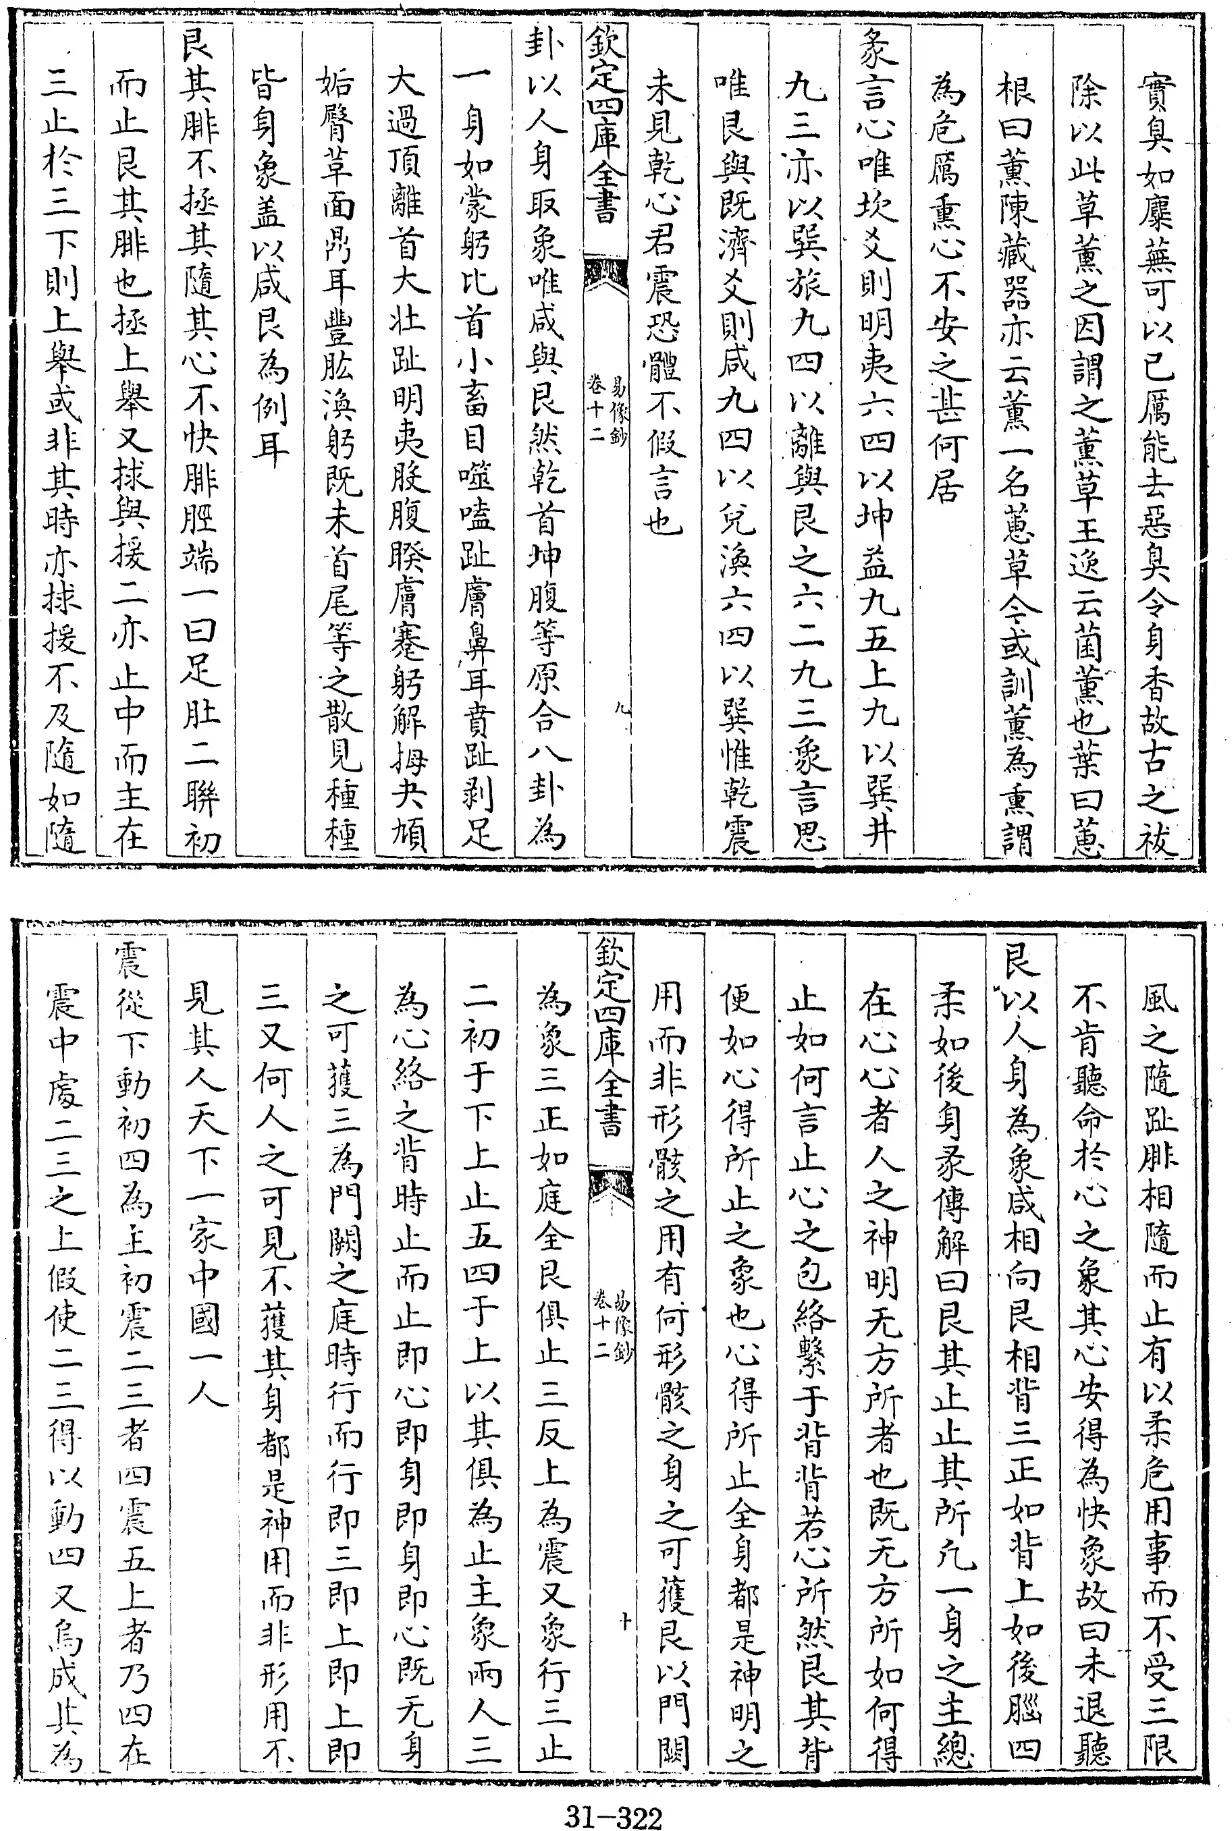 實臭如麋蕪可以已厲能去惡臭令身香故古之祓
除以此草薰之因謂之薰草王逸云菌薰也葉曰蕙
根曰薰陳藏器亦云薰一名蕙草今或訓薰為熏謂
為危厲熏心不安之甚何居
彖言心唯坎爻則明夷六四以坤益九五上九以巽井
九三亦以巽旅九四以離與艮之六二九三象言思
唯艮與既濟爻則咸九四以兌渙六四以巽惟乾震
未見乾心君震恐體不假言也
欽定四庫全書
易像鈔
卷十二
九
卦以人身取象唯咸與艮然乾首坤腹等原合八卦為
一身如蒙躬比首小畜目噬嗑趾膚鼻耳賁趾剥足
大過頂離首大壯趾明夷股腹睽膚蹇躬解拇夬頄
姤臀革面鼎耳豐肱渙躬既未首尾等之散見種種
皆身象盖以咸艮為例耳
艮其腓不拯其隨其心不快腓脛端一曰足肚二聯初
而止艮其腓也拯上舉又捄與援二亦止中而主在
三止於三下則上舉或非其時亦捄援不及隨如隨
風之隨趾腓相隨而止有以柔危用事而不受三限
不肯聽命於心之象其心安得為快象故曰未退聽
艮以人身為象咸相向艮相背三正如背上如後腦四
柔如後身彖傳解曰艮其止止其所凡一身之主總
在心心者人之神明无方所者也既无方所如何得
止如何言止心之包絡繫于背背若心所然艮其背
便如心得所止之象也心得所止全身都是神明之
用而非形骸之用有何形骸之身之可獲艮以門闕
欽定四庫全書
易像鈔
卷十二
十
為象三正如庭全艮俱止三反上為震又象行三止
二初于下上止五四于上以其俱為止主象兩人三
為心絡之背時止而止即心即身即身即心既无身
之可獲三為門闕之庭時行而行即三即上即上即
三又何人之可見不獲其身都是神用而非形用不
見其人天下一家中國一人
震從下動初四為主初震二三者四震五上者乃四在
震中處二三之上假使二三得以動四又烏成其為
31-322